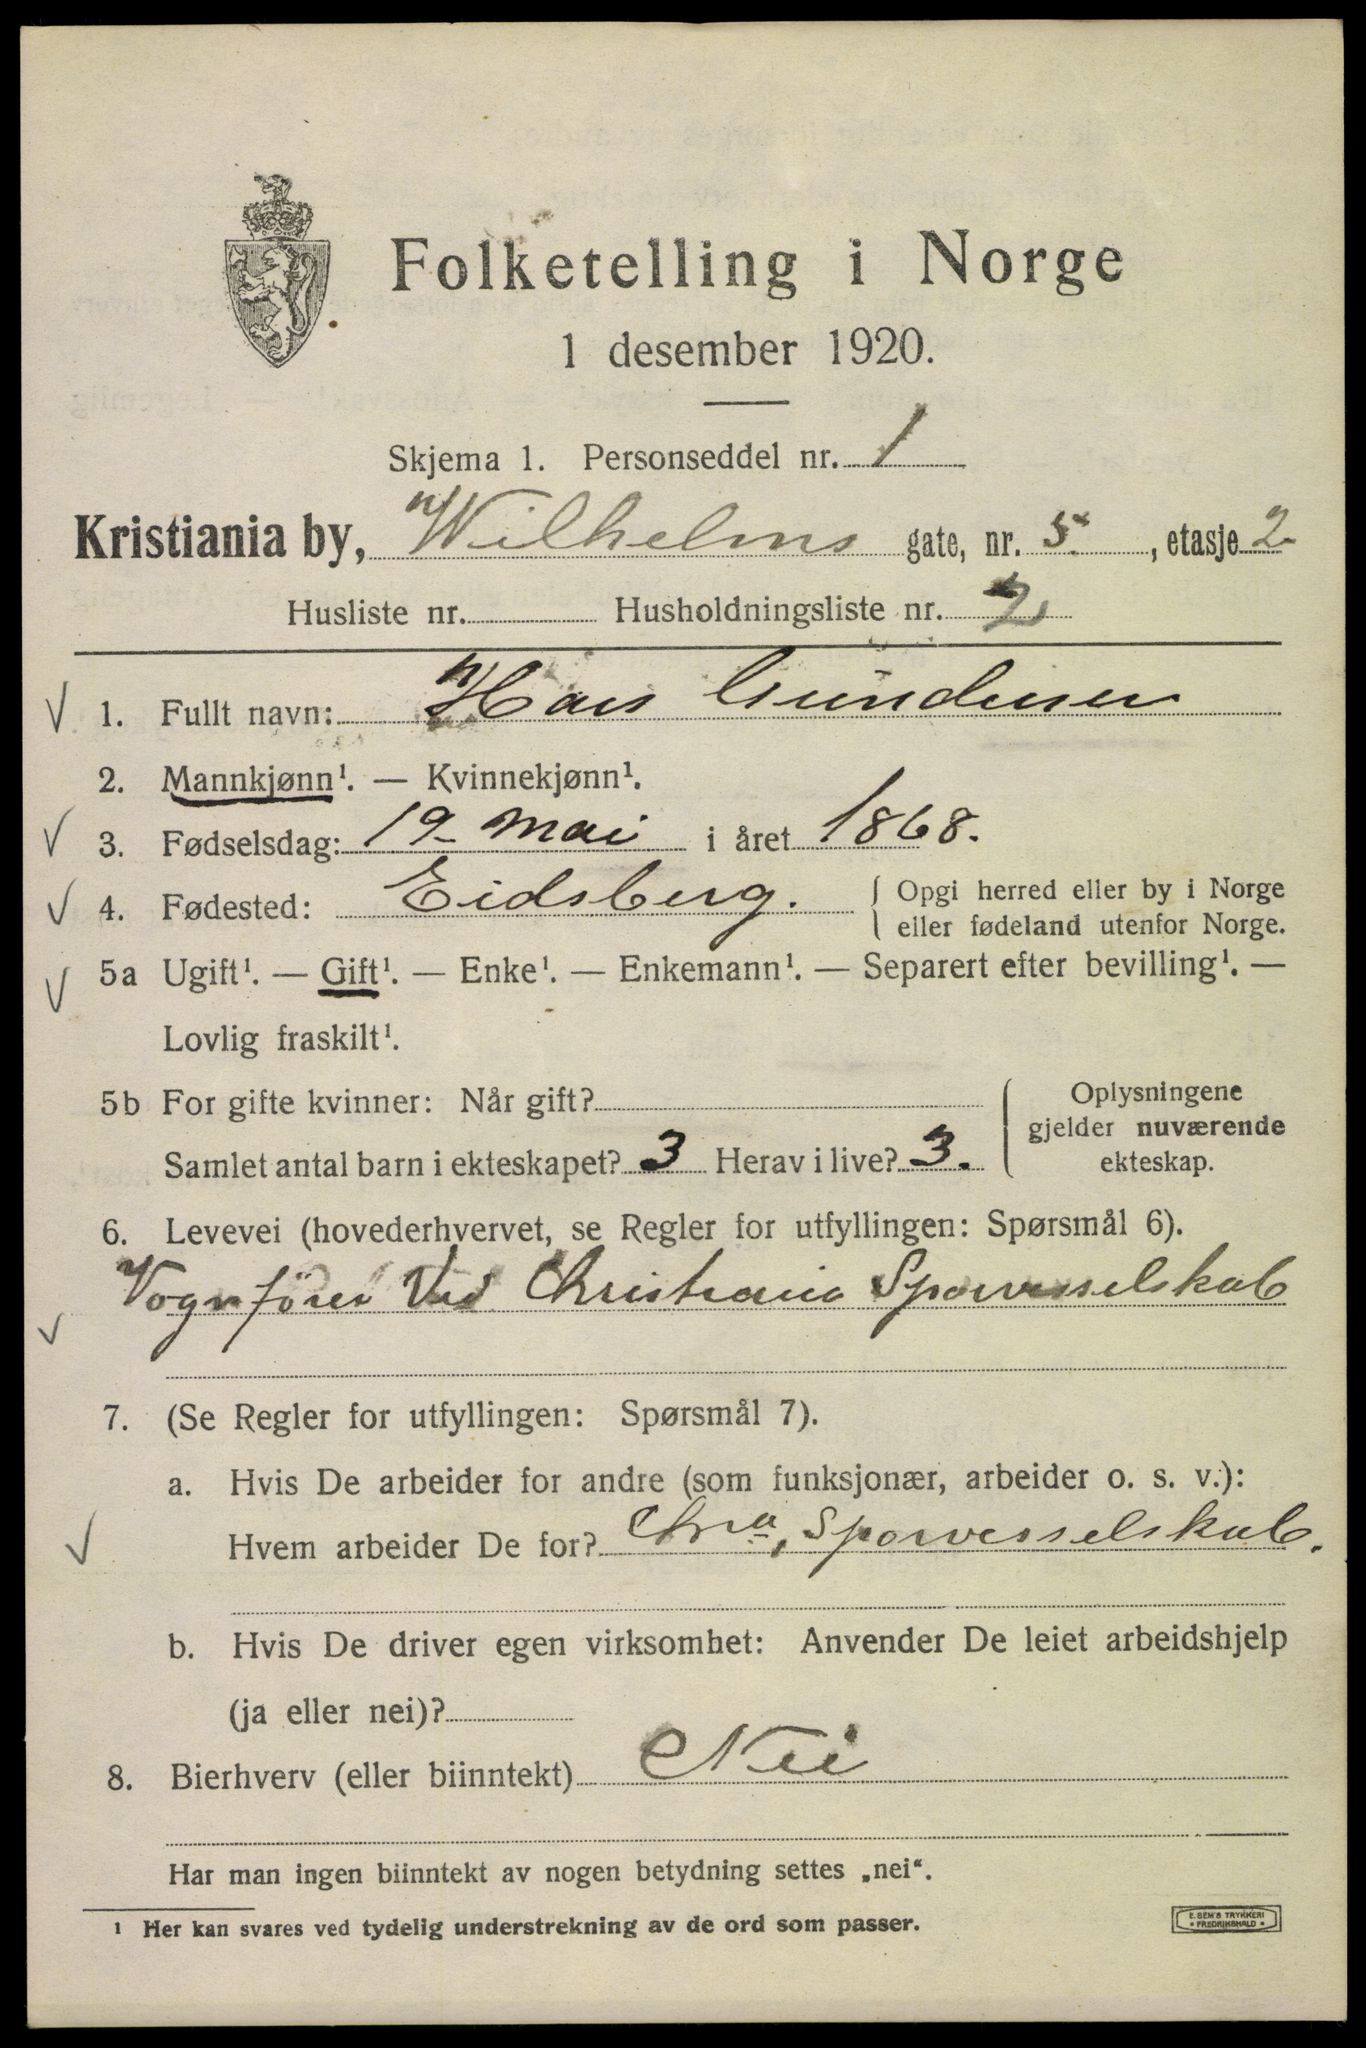 Folketelling i Norge
1 desember 1920.
Skjema 1. Personseddel nr. 1
Kristiania by, Wilhelms gate, nr. 5. , etasje 2
Husliste nr. Husholdningsliste nr. 2
1. Fullt navn: Hans Gundersen
2. Mannkjønn¹. — Kvinnekjønn¹.
3. Fødselsdag: 19 mai i året 1868.
4. Fødested: Eidsberg. { Opgi herred eller by i Norge
eller fødeland utenfor Norge.
5a Ugift¹. — Gift¹. — Enke¹. — Enkemann¹. — Separert efter bevilling¹. —
Lovlig fraskilt¹.
5b For gifte kvinner: Når gift?
Samlet antal barn i ekteskapet? 3 Herav i live? 3.
Oplysningene
gjelder nuværende
ekteskap.
6. Levevei (hovederhvervet, se Regler for utfyllingen: Spørsmål 6).
Vognfører Ved Christiania Sporvesselskab
7. (Se Regler for utfyllingen: Spørsmål 7).
a. Hvis De arbeider for andre (som funksjonær, arbeider o. s. v.):
Hvem arbeider De for? Chra, Sporvesselskab.
b. Hvis De driver egen virksomhet: Anvender De leiet arbeidshjelp
(ja eller nei)?
8. Bierhverv (eller biinntekt) Nei
Har man ingen biinntekt av nogen betydning settes „nei“.
¹ Her kan svares ved tydelig understrekning av de ord som passer.
E. SEM'S TRYKKERI
• FREDRIKSHALD •